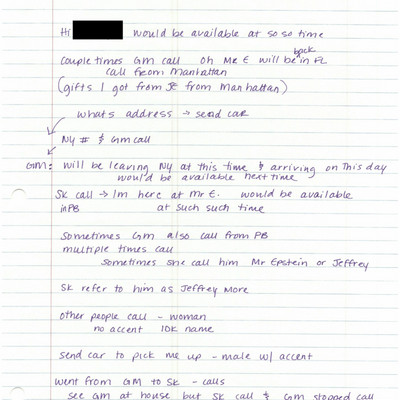 Hi would be available at so so time
Couple times GM call oh Mr E will be back in FL
call from Manhattan
(gifts I got from JE from Manhattan)
whats address → send car
NY # & GM call
GM: will be leaving NY at this time & arriving on This day
would be available next time
SK call → Im here at Mr E. would be available
in PB at such such time
Sometimes GM also call from PB
multiple times call
Sometimes she call him Mr Epstein or Jeffrey
SK refer to him as Jeffrey More
other people call - woman
no accent IDK name
send car to pick me up - male w/ accent
went from GM to SK - calls
see GM at house but SK call & GM stopped call